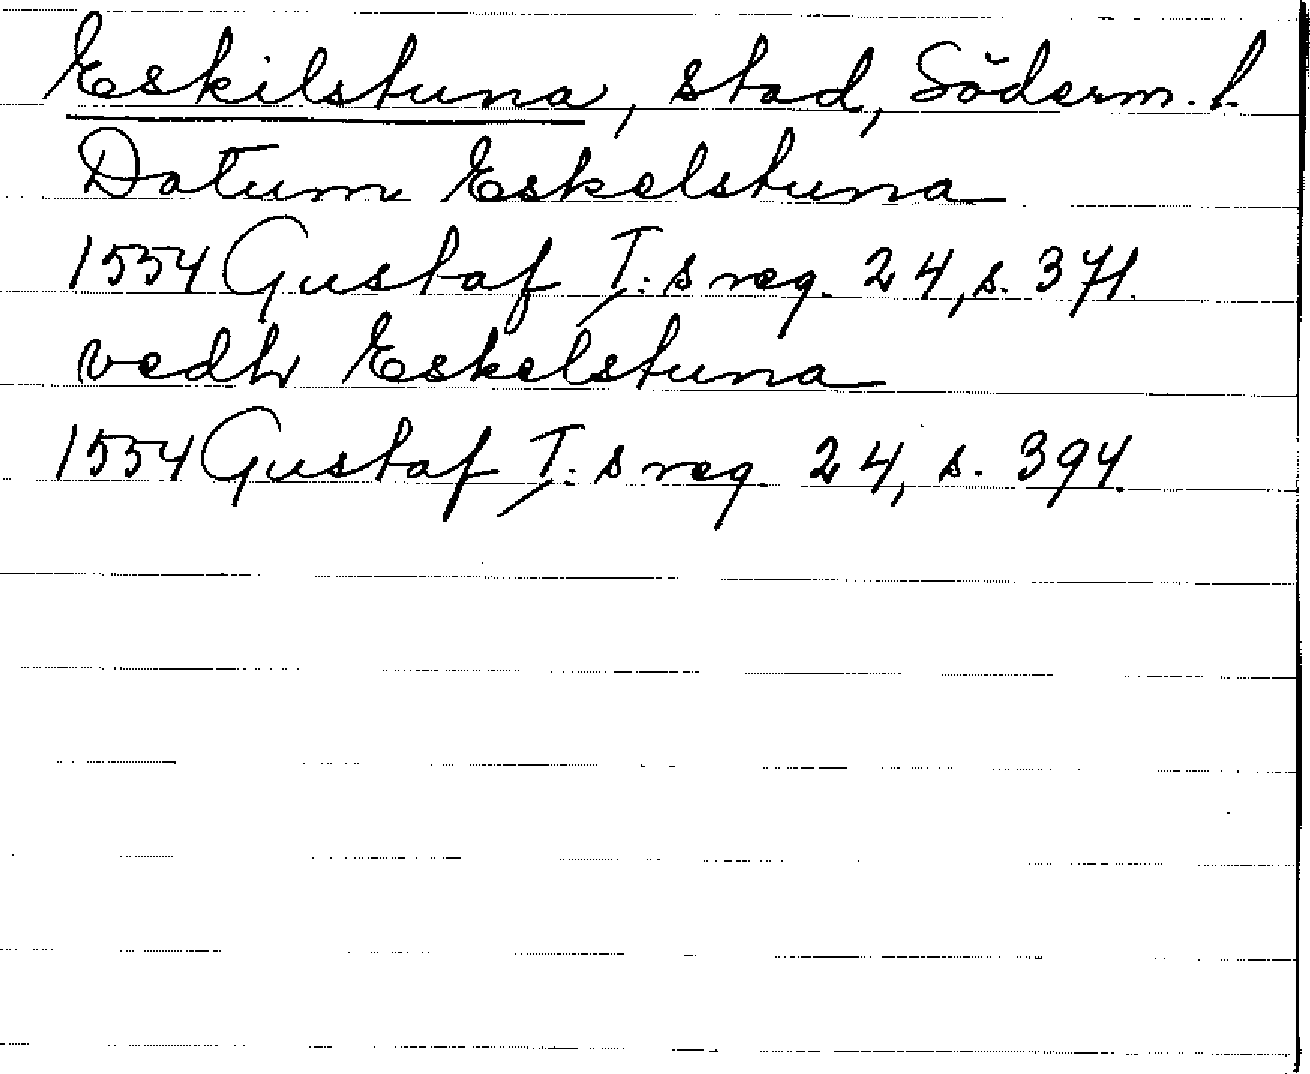 Eskilstuna, stad, Söderm. l.
Datum Eskelstuna
1554 Gustaf I:s reg. 24, s. 371.
vedh Eskelstuna
1554 Gustaf I:s reg. 24, s. 394.